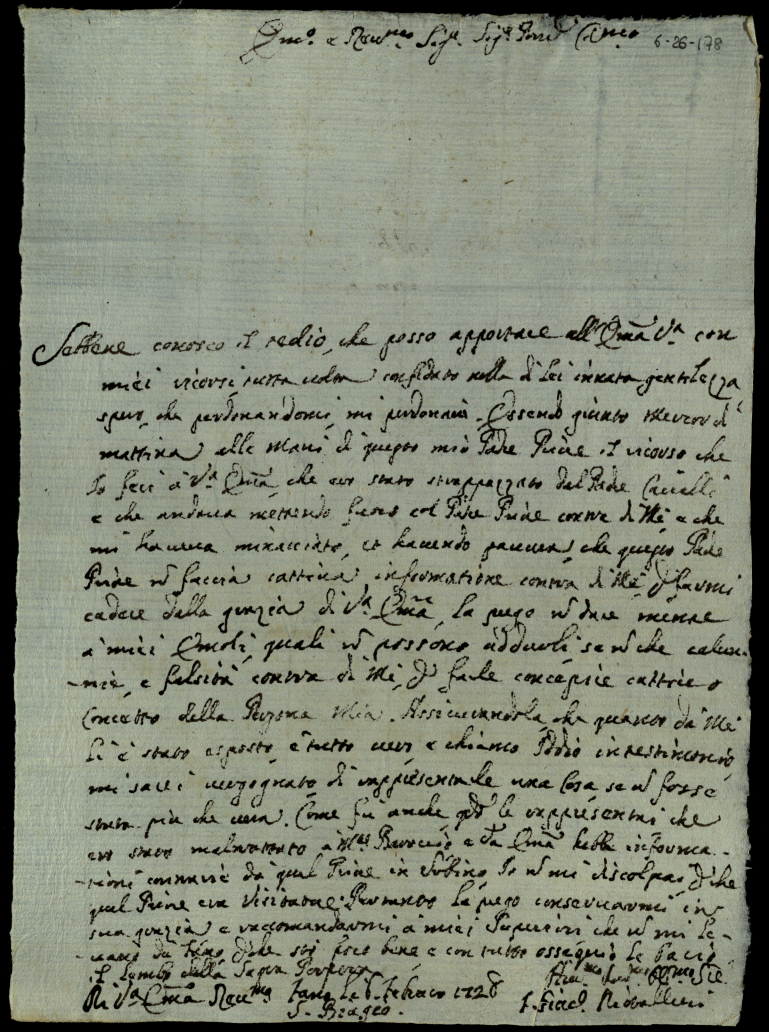 Em.o e Rev.mo Sig.r Sig.r P.rone
6-26-178
Sebbene conosco il tedio, che posso apportare all'Em.a V.a con
miei ricorsi, tutta volta confidato nella di Lei innata gentilezza
spero, che perdonandomi, mi perdonarà. Essendo giunto
mattina alle Mani di questo mio Padre Priore il ricorso che
Io feci à V.a Em.a che ero stato strappazzato dal Padre
e che andava mettendo fuoco col Padre Priore contra di Mè, e che
mi haveva minacciato, et havendo paura, che questo Padre
Priore non faccia cattiva informatione contra di Mè, di farmi
cadere dalla grazia di V.a Em.a, la prego non dare mente
à miei Emoli, quali non possono addurli se non che calun-
nie, e falsità contra di Mè, di farle concepire cattivo
Concetto della Persona Mia. Assicurandola, che quanto da Mè
li è stato esposto, è tutto vero e chiamo Iddio in testimonio,
mi sarei vergognato di rappresentarle una Cosa se non fosse
stata più che vera. Come fù anche le rappresentai che
ero stato malтrattato e V.a Em.a hebbe informa-
tioni contrarie da quel Priore in Io non mi discolpai, che
quel Priore era Visitatore. Pertanto la prego conservarmi in
sua grazia e raccomandarmi à miei Superiori che non mi le-
vano da Fano, che stò bene e con tutto ossequio le bacio
il Lembo della Sagra Porpora
Di V.a Em.a Rev.ma Fano li 6. Febraro 1728
S. Biagio.